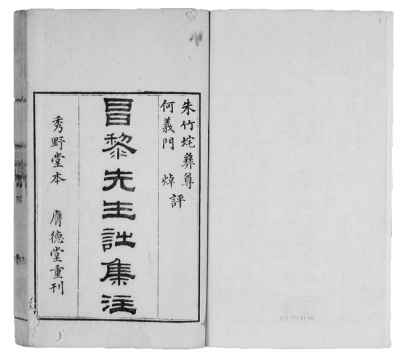 朱竹垞彝尊
何義門焯 評
昌黎先生詩集注
秀野堂本 膺德堂重刊